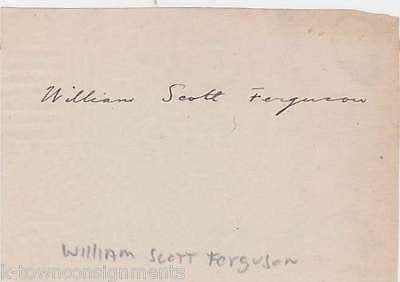 William Scott Ferguson
WILLIAM SCOTT FERGUSON
k-townconsignments